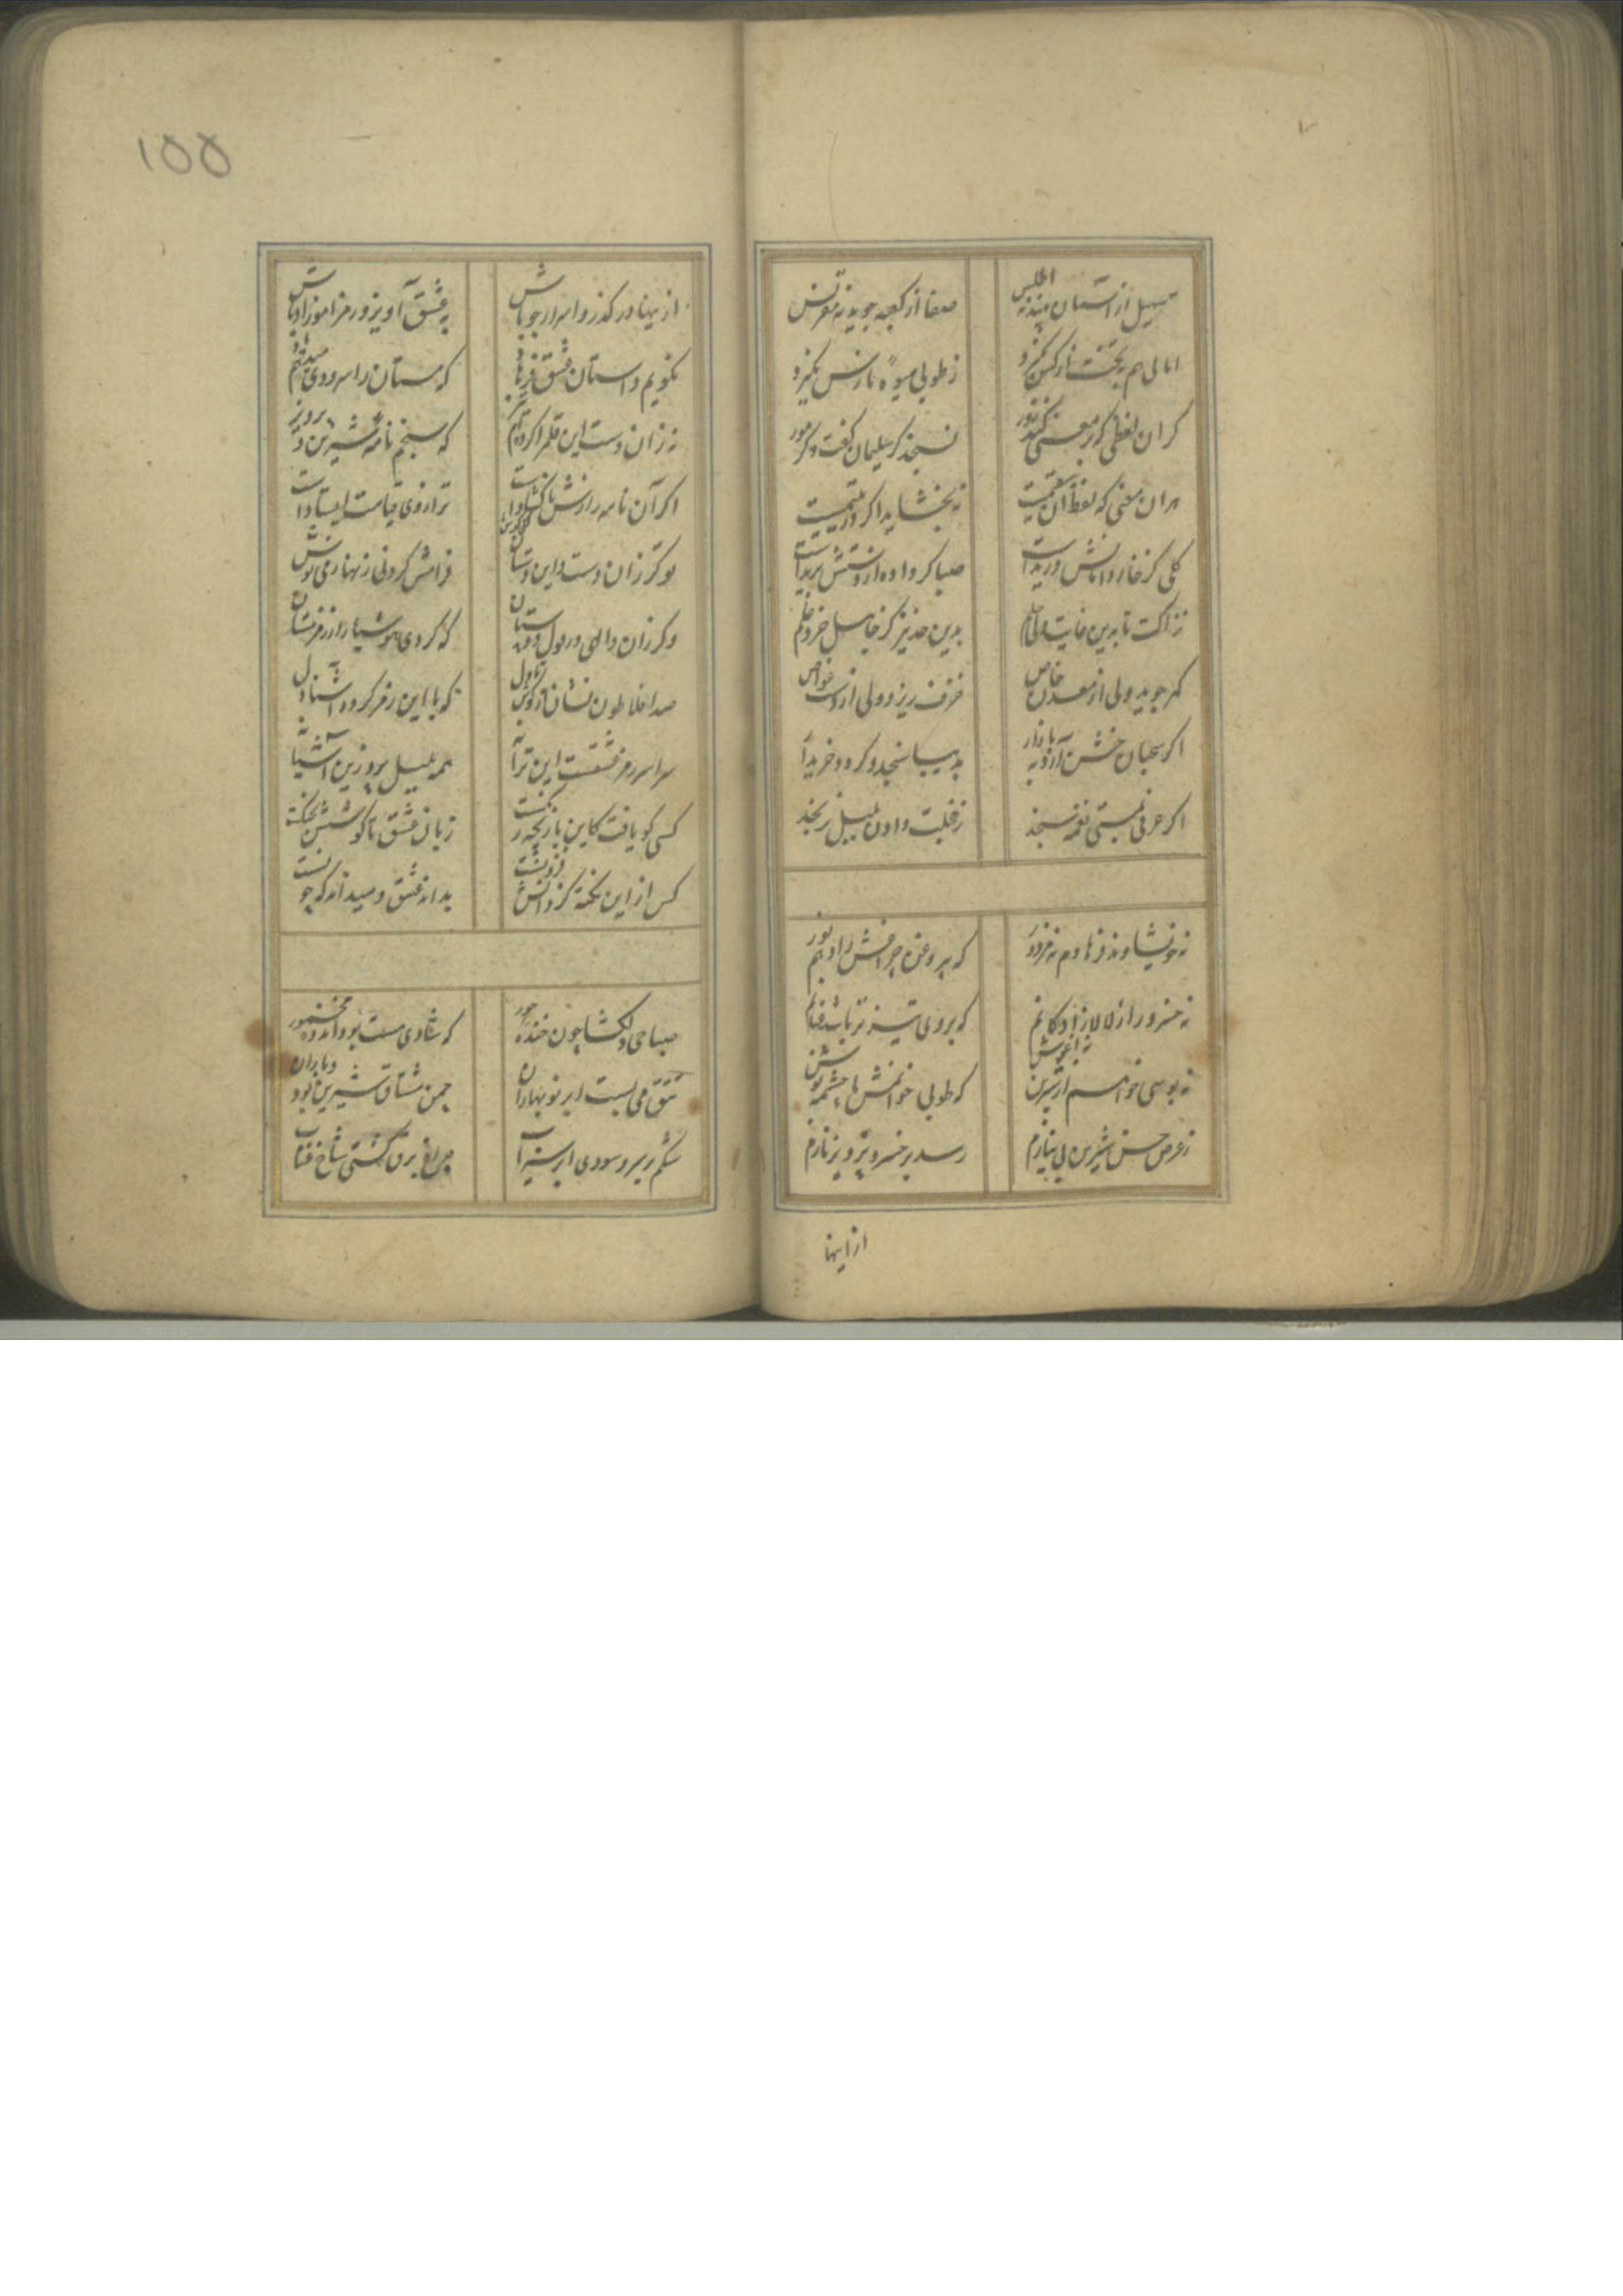 سهیل از آسمان بیند نه اطلس
صفا از کعبه جوید نه مقرنس
امالی هم بجنت نارکس نکیرد
ز طوبی میوهٔ نارس نکیرد
کر ان لفظی کز معنی کند دور
نسنجد کر سلیمان کفت و کر مور
هر ان معنی که لفظ ان سقیمست
نبخشاید اکر در یتیمست
کلی کز خار دامانش دریداست
صبا کر داده از دستش بریداست
نزاکت تا بدین غایت
بدین حد نیز کز خیل خرد
کهر جوید ولی از معدن خاص
خزف ریزد ولی از دست غواص
اکر سحبان خشن آرد ببازار
بدیبا سنجد و کردد خریدار
اکر عرفی بمستی نغمه سنجد
ز خجلت دادن بلبل نرنجد
نه خویشاوند فرهادم نه مزدور
که بر وغن چراغش را دهم نور
نه خسرو را ز لالا زادکانم
که بر وی تیز تر باشد فغانم
نه بوسی خواهم از شیرین نه اغوش
که طوبی خوانمش با چشمه نوش
ز عرض حسن شیرین بی نیازم
رسد بر خسرو پرویز نازم
از اینها
از ینها در کذر و اسرار جو باش
به عشق آویز و رمز اموز او باش
نکویم داستان عشق فرهاد
که مستان را سرودی میدهم یاد
نه زان دست این قلم را کرده ام تیز
که سنجم نامهٔ شیرین و پرویز
اکر آن نامه را زش کشاداست
ترازوی قیامت ایستاداست
تو کر زان دست و این دستان
فرامش کردنی زنهار می نوش
و کر زان والهی در بول دستان
که کردی هوشیار از رمز مستان
صد افلاطون نشان از کوش تا دل
که با این رمز کردد آشنا دل
سراسر رمز عشقست این ترانه
همه بلبل پرد زین آشیانه
کسی کو یافت کاین بازیچه رنکست
زبان عشق تا کوشش بجنکست
کس از این نکته کز دانش فزونست
بداند عشق و میداند که چونست
صباحی دلکشا چون خندهٔ حور
که شادی مست بود اندوه مخمور
تتق می بست ابر نوبهاران
چمن مشتاق شیرین بود و باران
شکم بر سرو سودی ابر سیراب
چراغ برق کشتی شاخ عناب
۱۵۵